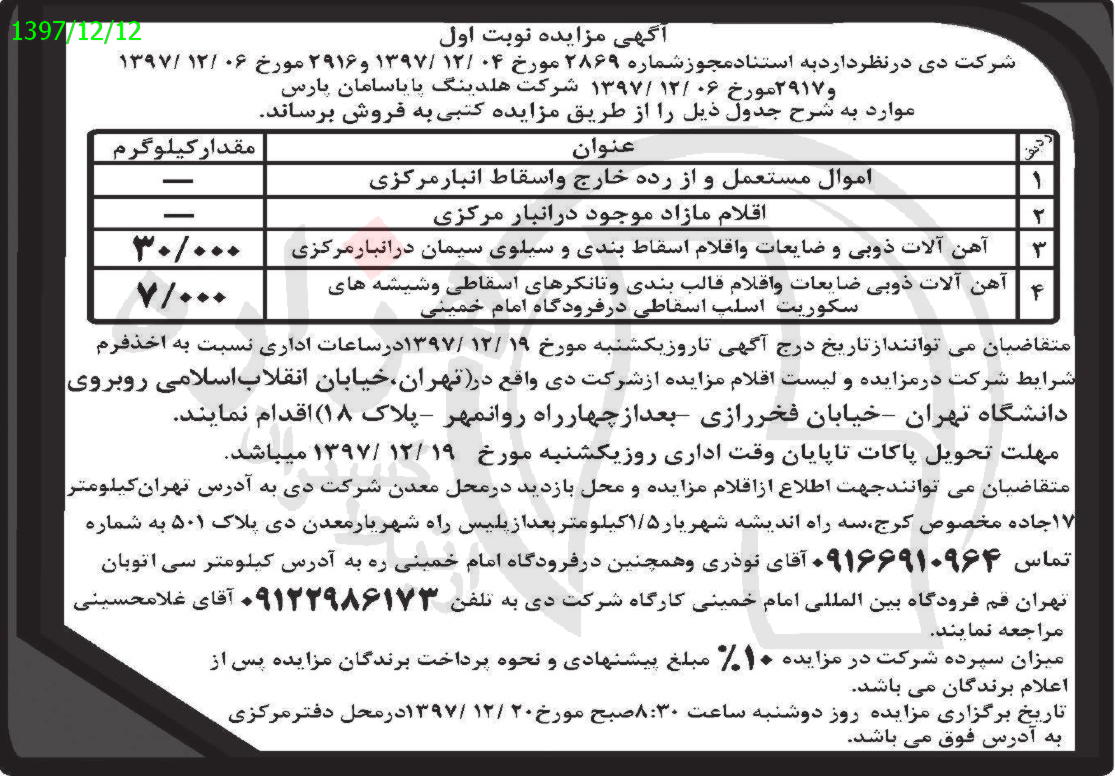 1397/12/12
آگهی مزایده نوبت اول
شرکت دی درنظرداردبه استنادمجوزشماره ۲۸۶۹ مورخ ۰۴ /۱۲ /۱۳۹۷ و۲۹۱۶ مورخ ۰۶ /۱۲ /۱۳۹۷
و۲۹۱۷مورخ ۰۶ /۱۲ /۱۳۹۷ شرکت هلدینگ پایاسامان پارس
موارد به شرح جدول ذیل را از طریق مزایده کتبی به فروش برساند.
ردیف عنوان مقدارکیلوگرم
۱ اموال مستعمل و از رده خارج واسقاط انبارمرکزی —
۲ اقلام مازاد موجود درانبار مرکزی —
۳ آهن آلات ذوبی و ضایعات واقلام اسقاط بندی و سیلوی سیمان درانبارمرکزی ۳۰/۰۰۰
۴ آهن آلات ذوبی ضایعات واقلام قالب بندی وتانکرهای اسقاطی وشیشه های
سکوریت اسلب اسقاطی درفرودگاه امام خمینی ۷/۰۰۰
متقاضیان می توانندازتاریخ درج آگهی تاروزیکشنبه مورخ ۱۹ /۱۲ /۱۳۹۷درساعات اداری نسبت به اخذفرم
شرایط شرکت درمزایده و لیست اقلام مزایده ازشرکت دی واقع در(تهران،خیابان انقلاب‌اسلامی روبروی
دانشگاه تهران –خیابان فخررازی –بعدازچهارراه روانمهر –پلاک ۱۸)اقدام نمایند.
مهلت تحویل پاکات تاپایان وقت اداری روزیکشنبه مورخ ۱۹ /۱۲ /۱۳۹۷ میباشد.
متقاضیان می توانندجهت اطلاع ازاقلام مزایده و محل بازدید درمحل معدن شرکت دی به آدرس تهران‌کیلومتر
۱۷جاده مخصوص کرج،سه راه اندیشه شهریار۱/۵کیلومتربعدازپلیس راه شهریارمعدن دی پلاک ۵۰۱ به شماره
تماس ۰۹۱۶۶۹۱۰۹۶۴ آقای نوذری وهمچنین درفرودگاه امام خمینی ره به آدرس کیلومتر سی اتوبان
تهران قم فرودگاه بین المللی امام خمینی کارگاه شرکت دی به تلفن ۰۹۱۲۲۹۸۶۱۷۳ آقای غلامحسینی
مراجعه نمایند.
میزان سپرده شرکت در مزایده ۱۰٪ مبلغ پیشنهادی و نحوه پرداخت برندگان مزایده پس از
اعلام برندگان می باشد.
تاریخ برگزاری مزایده روز دوشنبه ساعت ۸:۳۰صبح مورخ۲۰ /۱۲ /۱۳۹۷درمحل دفترمرکزی
به آدرس فوق می باشد.